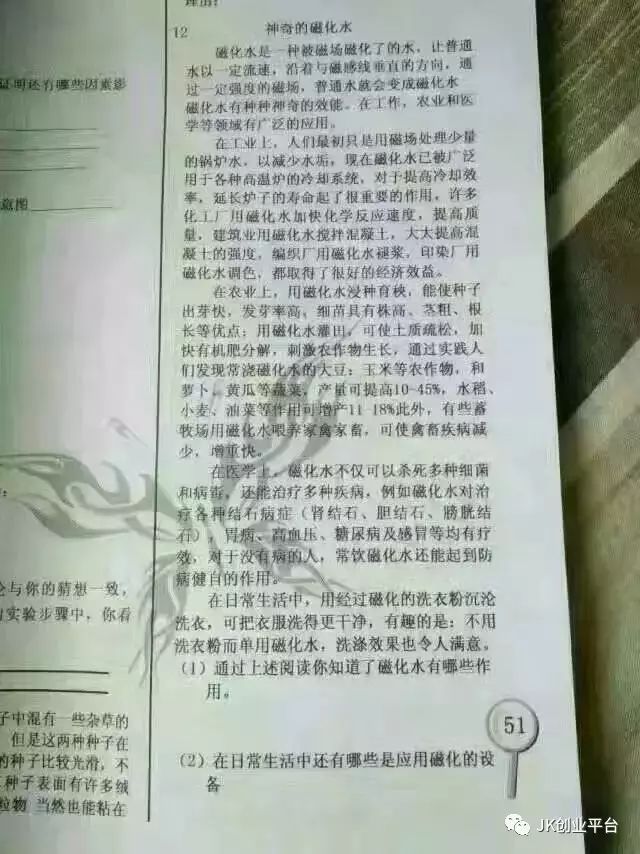 理由：
证明还有哪些因素影
意图
论与你的猜想一致，
的实验步骤中，你看
子中混有一些杂草的
但是这两种种子在
的种子比较光滑，不
种子表面有许多绒
粒物 当然也能粘在
12 神奇的磁化水
磁化水是一种被磁场磁化了的水，让普通
水以一定流速，沿着与磁感线垂直的方向，通
过一定强度的磁场，普通水就会变成磁化水
磁化水有种种神奇的效能。在工作，农业和医
学等领域有广泛的应用。
在工业上，人们最初只是用磁场处理少量
的锅炉水，以减少水垢，现在磁化水已被广泛
用于各种高温炉的冷却系统，对于提高冷却效
率，延长炉子的寿命起了很重要的作用，许多
化工厂用磁化水加快化学反应速度，提高质
量，建筑业用磁化水搅拌混凝土，大大提高混
凝土的强度，编织厂用磁化水褪浆，印染厂用
磁化水调色，都取得了很好的经济效益。
在农业上，用磁化水浸种育秧，能使种子
出芽快，发芽率高，细苗具有株高、茎粗、根
长等优点；用磁化水灌田，可使土质疏松，加
快有机肥分解，刺激农作物生长，通过实践人
们发现常浇磁化水的大豆；玉米等农作物，和
萝卜、黄瓜等蔬菜，产量可提高10-45%，水稻、
小麦、油菜等作用可增产11 18%此外，有些畜
牧场用磁化水喂养家禽家畜，可使禽畜疾病减
少，增重快。
在医学上，磁化水不仅可以杀死多种细菌
和病毒，还能治疗多种疾病，例如磁化水对治
疗各种结石病症（肾结石、胆结石、膀胱结
石） 胃病、高血压、糖尿病及感冒等均有疗
效，对于没有病的人，常饮磁化水还能起到防
病健自的作用。
在日常生活中，用经过磁化的洗衣粉沉沦
洗衣，可把衣服洗得更干净，有趣的是：不用
洗衣粉而单用磁化水，洗涤效果也令人满意。
（1）通过上述阅读你知道了磁化水有哪些作
用。
（2）在日常生活中还有哪些是应用磁化的设
备
51
JK创业平台